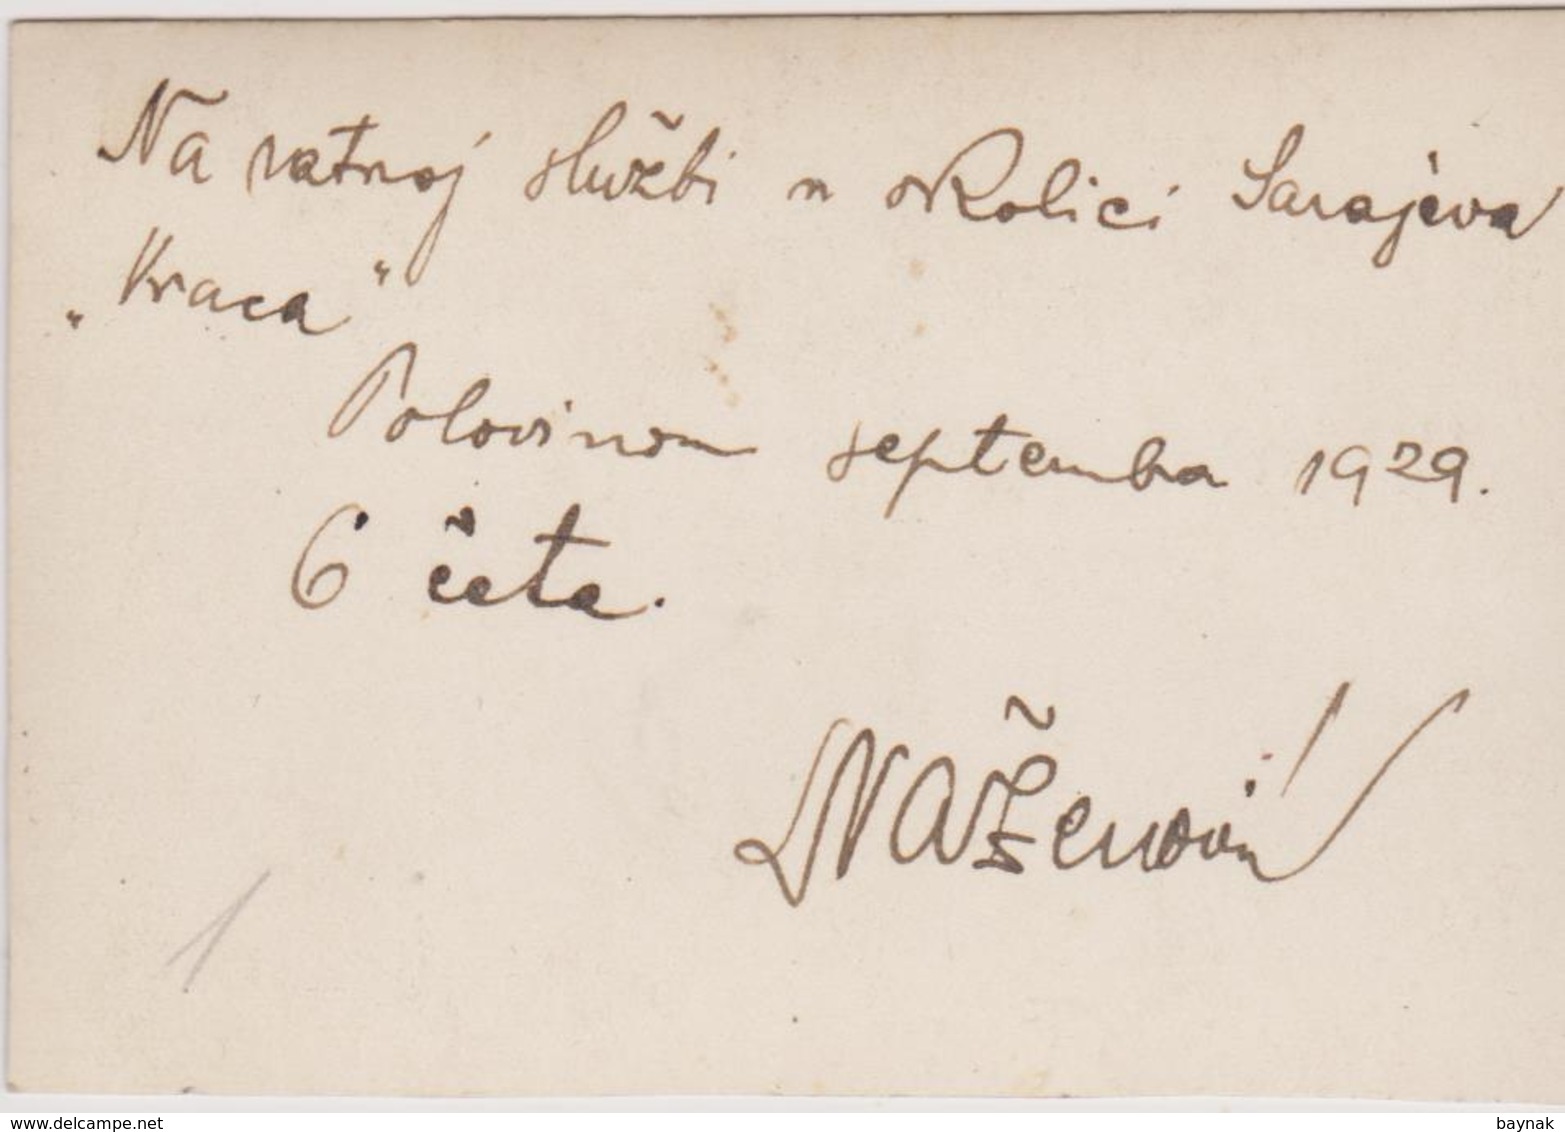 Na ratnoj službi u okolici Sarajeva
„Vraca"
Polovinom septembra 1929.
6 četa.
delcampe.net
baynak